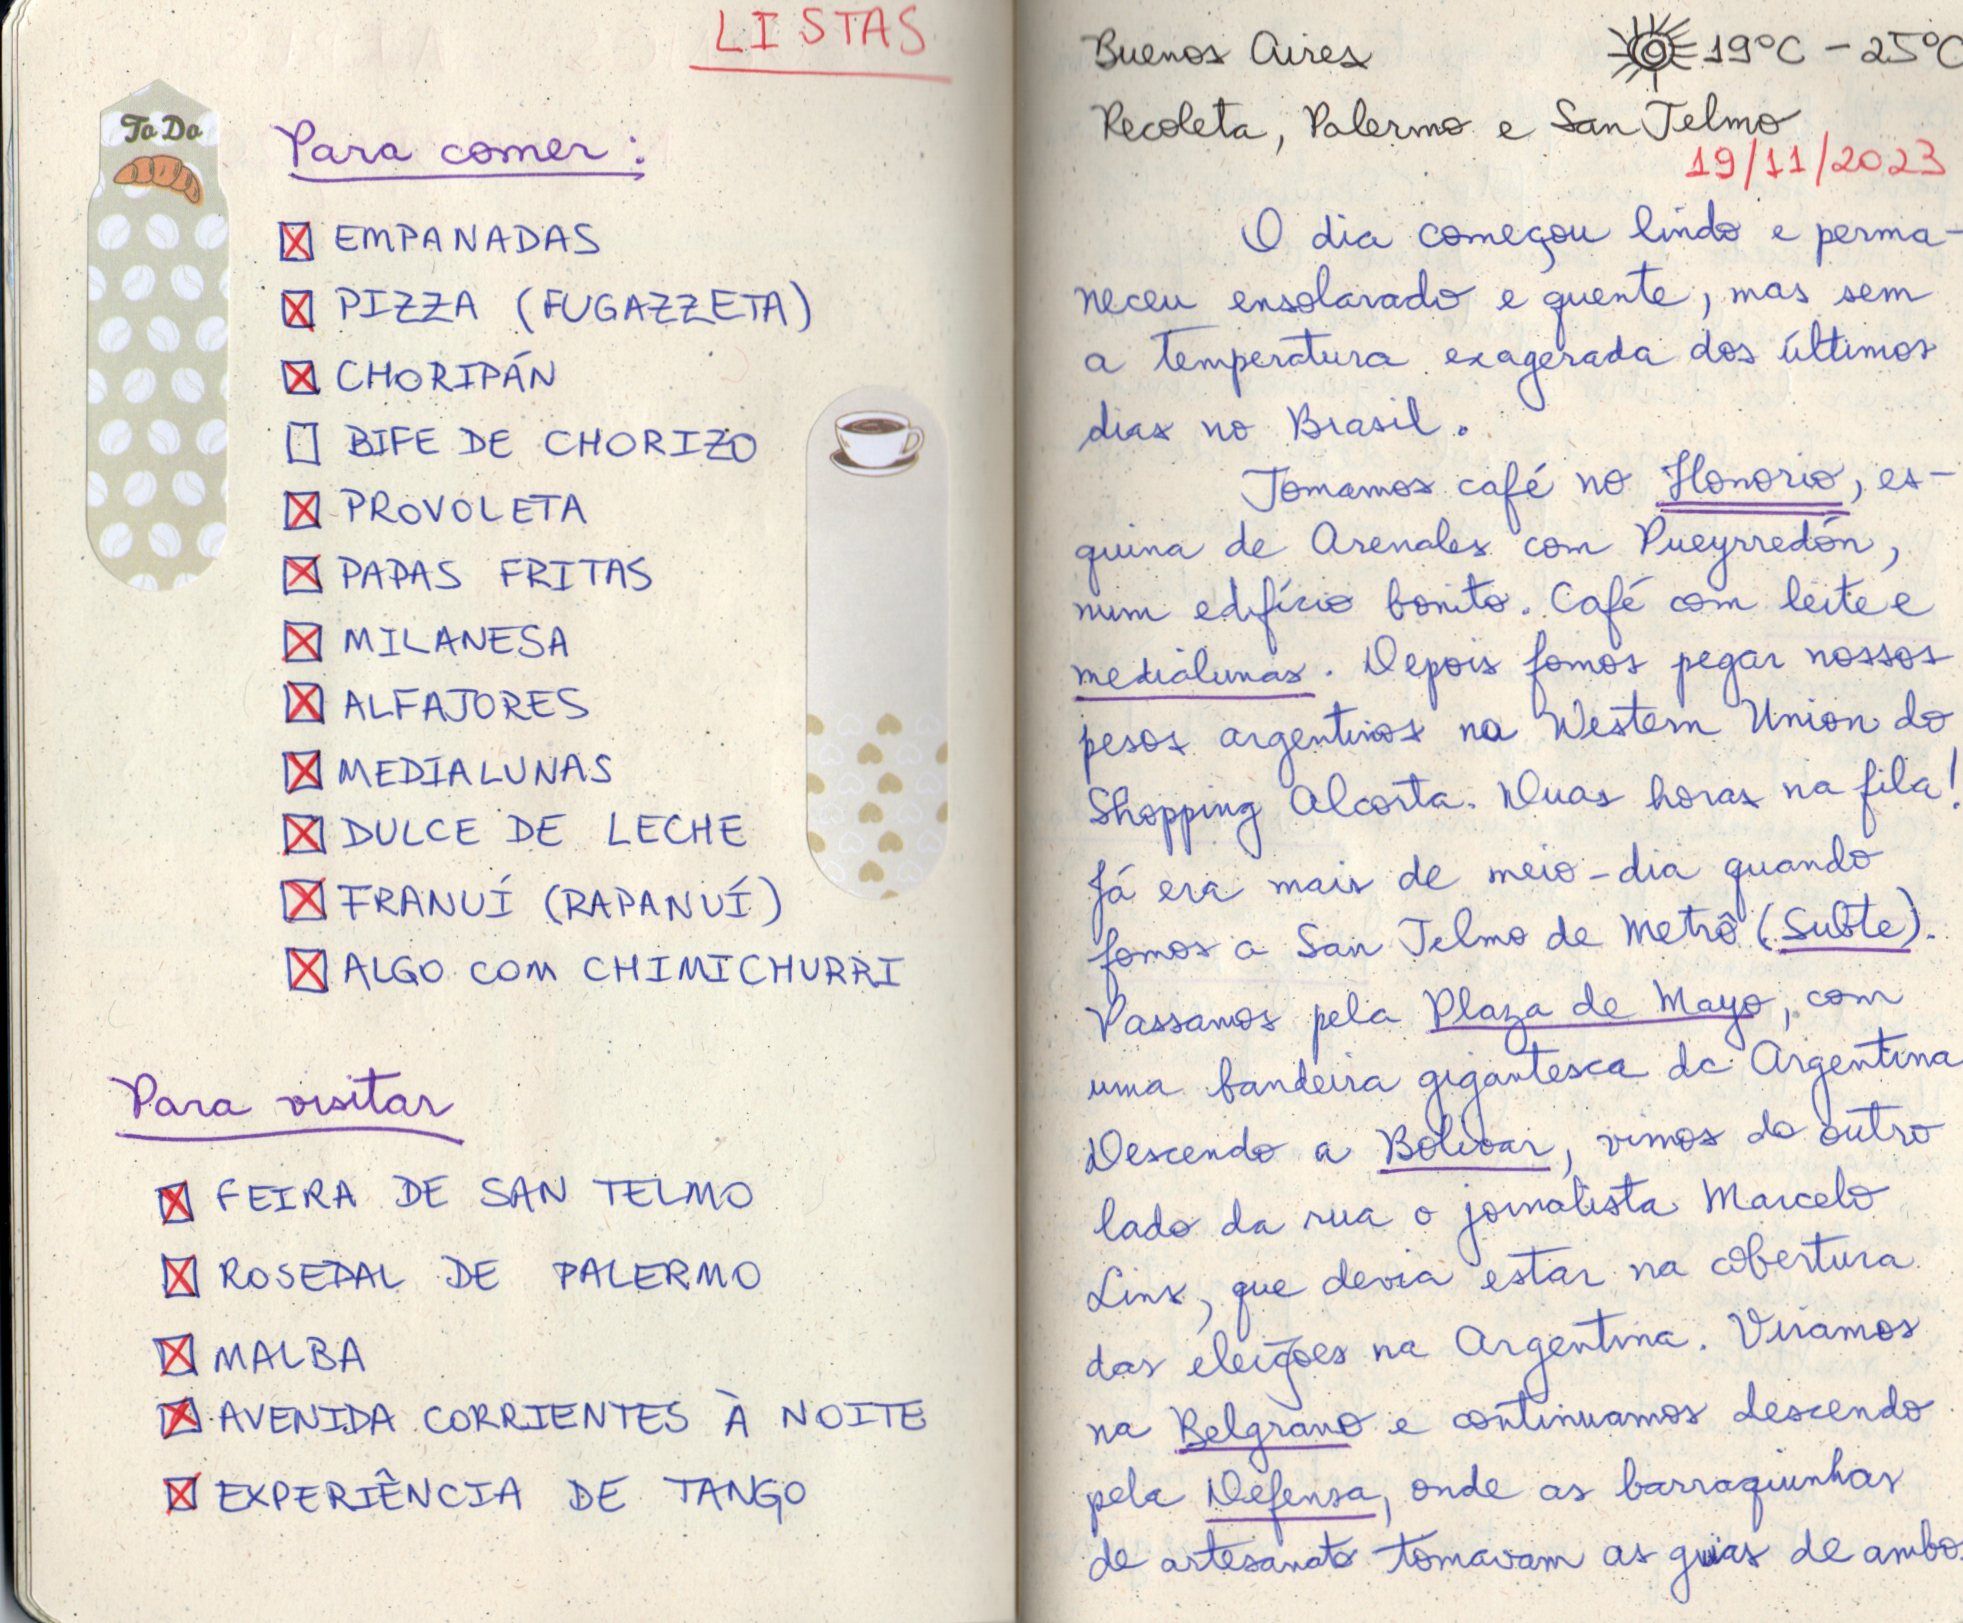 LISTAS
To Do
Para comer:
☒ EMPANADAS
☒ PIZZA (FUGAZZETA)
☒ CHORIPÁN
☐ BIFE DE CHORIZO
☒ PROVOLETA
☒ PAPAS FRITAS
☒ MILANESA
☒ ALFAJORES
☒ MEDIALUNAS
☒ DULCE DE LECHE
☒ FRANUÍ (RAPANUÍ)
☒ ALGO COM CHIMICHURRI
Para visitar
☒ FEIRA DE SAN TELMO
☒ ROSEDAL DE PALERMO
☒ MALBA
☒ AVENIDA CORRIENTES À NOITE
☒ EXPERIÊNCIA DE TANGO
Buenos Aires 19°C - 25°C
Recoleta, Palermo e San Telmo
19/11/2023
O dia começou lindo e perma-
neceu ensolarado e quente, mas sem
a temperatura exagerada dos últimos
dias no Brasil.
Tomamos café no Honorio, es-
quina de Arenales com Pueyrredón,
num edifício bonito. Café com leite e
medialunas. Depois fomos pegar nossos
pesos argentinos na Western Union do
Shopping Alcorta. Duas horas na fila!
Já era mais de meio-dia quando
fomos a San Telmo de Metrô (Subte).
Passamos pela Plaza de Mayo, com
uma bandeira gigantesca da Argentina
Descendo a Bolívar, vimos do outro
lado da rua o jornalista Marcelo
Lins, que devia estar na cobertura
das eleições na Argentina. Viramos
na Belgrano e continuamos descendo
pela Defensa, onde as barraquinhas
de artesanato tomavam as guias de ambos